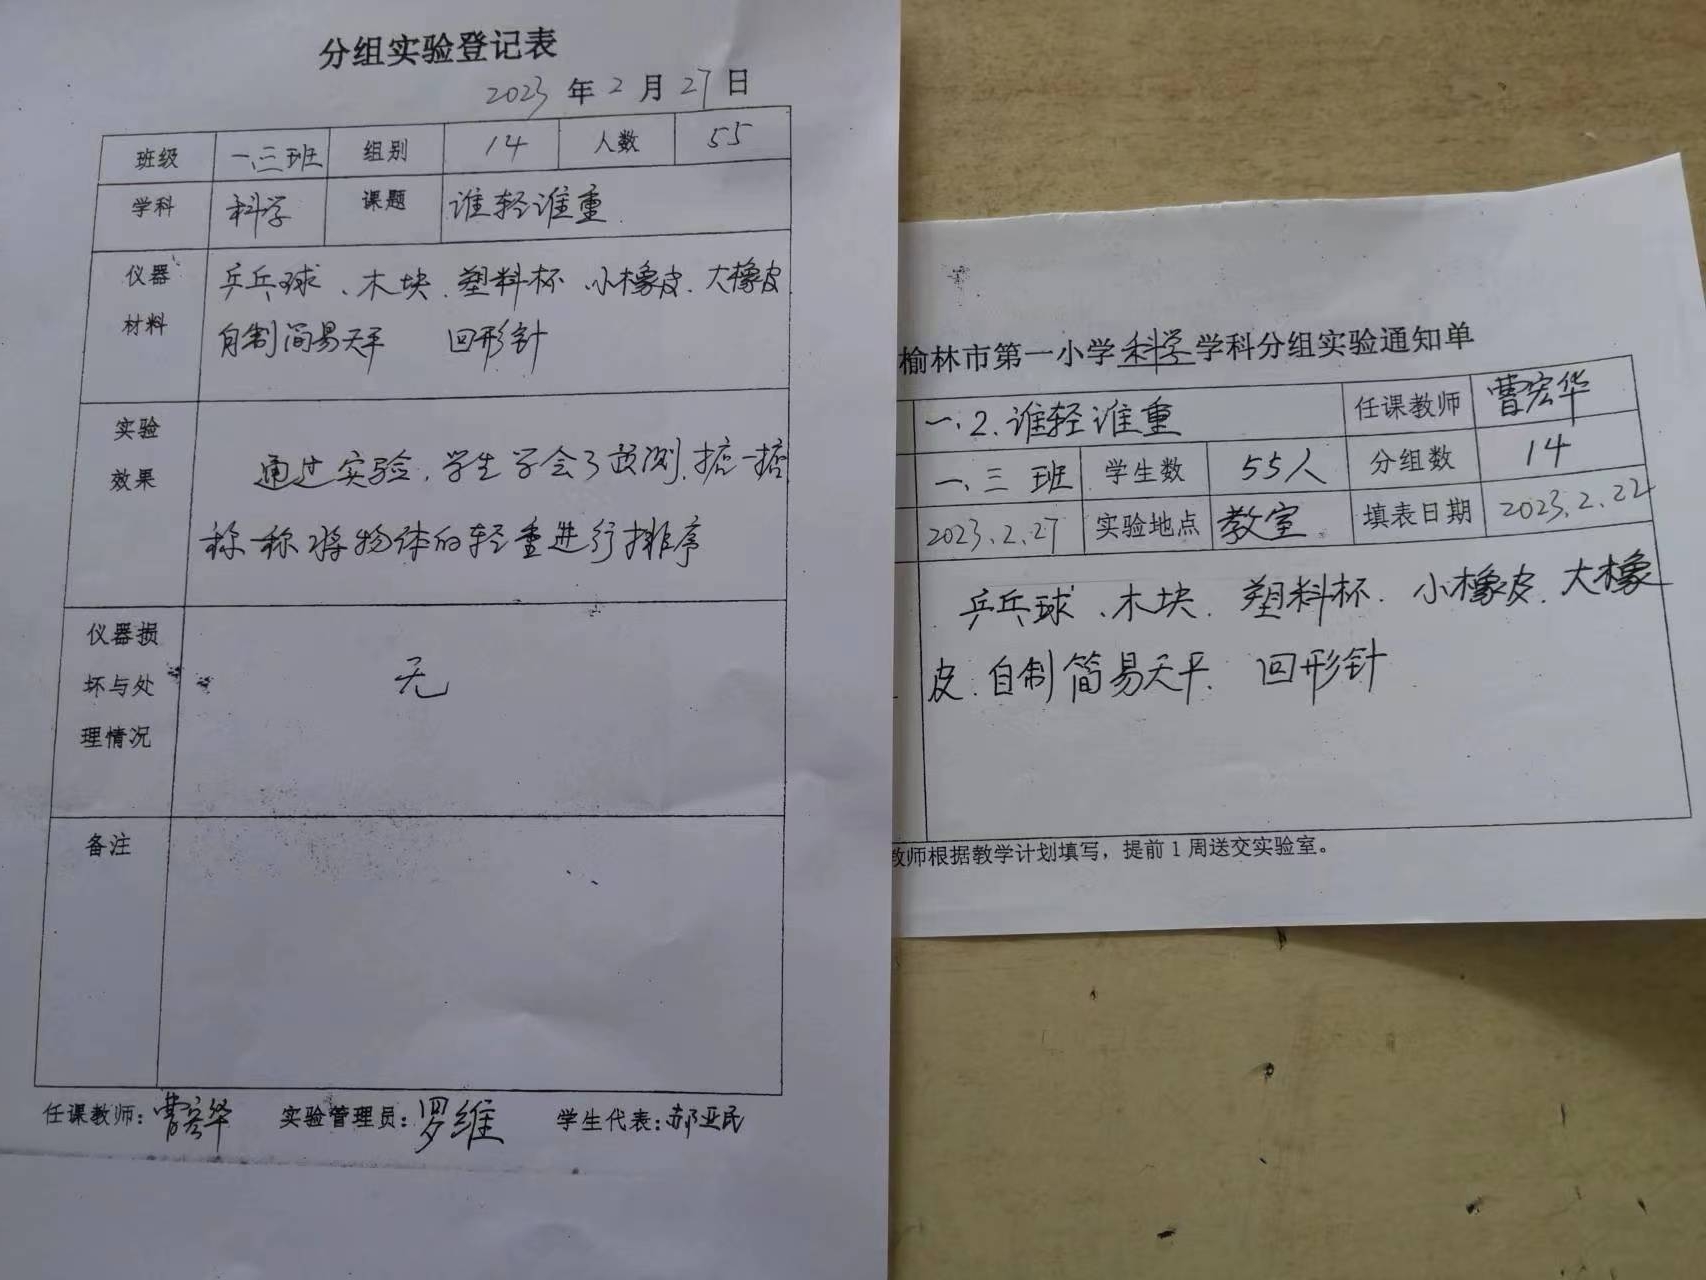 分组实验登记表
2023年2月27日
班级 一.三班 组别 14 人数 55
学科 科学 课题 谁轻谁重
仪器材料 乒乓球、木块、塑料杯、小橡皮、大橡皮
自制简易天平 回形针
实验效果 通过实验,学生学会了预测、掂一掂
称一称将物体的轻重进行排序
仪器损坏与处理情况 无
备注
任课教师:曹宏华 实验管理员:罗维 学生代表:郝亚民
榆林市第一小学科学学科分组实验通知单
一.2.谁轻谁重 任课教师 曹宏华
一.三班 学生数 55人 分组数 14
2023.2.27 实验地点 教室 填表日期 2023.2.22
乒乓球、木块、塑料杯、小橡皮、大橡
皮、自制简易天平、回形针
教师根据教学计划填写,提前1周送交实验室。